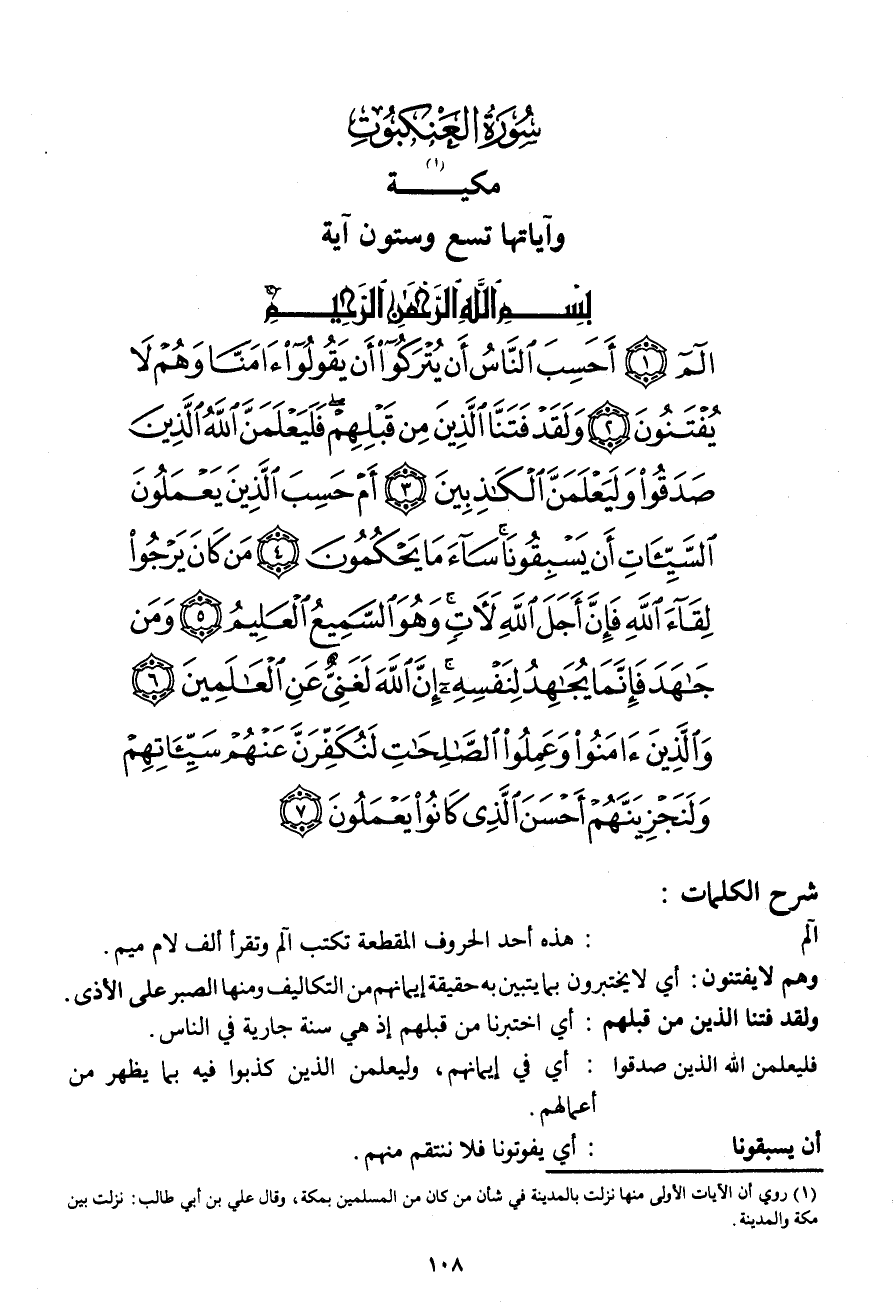 سُورَةُ الْعَنكَبُوتِ
مكيـــــة (١)
وآياتها تسع وستون آية
بِسْمِ ٱللَّهِ ٱلرَّحْمَٰنِ ٱلرَّحِيمِ
الٓمٓ ﴿١﴾ أَحَسِبَ ٱلنَّاسُ أَن يُتْرَكُوٓا۟ أَن يَقُولُوٓا۟ ءَامَنَّا وَهُمْ لَا
يُفْتَنُونَ ﴿٢﴾ وَلَقَدْ فَتَنَّا ٱلَّذِينَ مِن قَبْلِهِمْ ۖ فَلَيَعْلَمَنَّ ٱللَّهُ ٱلَّذِينَ
صَدَقُوا۟ وَلَيَعْلَمَنَّ ٱلْكَٰذِبِينَ ﴿٣﴾ أَمْ حَسِبَ ٱلَّذِينَ يَعْمَلُونَ
ٱلسَّيِّـَٔاتِ أَن يَسْبِقُونَا ۚ سَآءَ مَا يَحْكُمُونَ ﴿٤﴾ مَن كَانَ يَرْجُوا۟
لِقَآءَ ٱللَّهِ فَإِنَّ أَجَلَ ٱللَّهِ لَـَٔاتٍ ۚ وَهُوَ ٱلسَّمِيعُ ٱلْعَلِيمُ ﴿٥﴾ وَمَن
جَٰهَدَ فَإِنَّمَا يُجَٰهِدُ لِنَفْسِهِۦٓ ۚ إِنَّ ٱللَّهَ لَغَنِىٌّ عَنِ ٱلْعَٰلَمِينَ ﴿٦﴾
وَٱلَّذِينَ ءَامَنُوا۟ وَعَمِلُوا۟ ٱلصَّٰلِحَٰتِ لَنُكَفِّرَنَّ عَنْهُمْ سَيِّـَٔاتِهِمْ
وَلَنَجْزِيَنَّهُمْ أَحْسَنَ ٱلَّذِى كَانُوا۟ يَعْمَلُونَ ﴿٧﴾
شرح الكلمات :
آلم : هذه أحد الحروف المقطعة تكتب آلم وتقرأ ألف لام ميم .
وهم لا يفتنون : أي لا يختبرون بما يتبين به حقيقة إيمانهم من التكاليف ومنها الصبر على الأذى .
ولقد فتنا الذين من قبلهم : أي اختبرنا من قبلهم إذ هي سنة جارية في الناس .
فليعلمن الله الذين صدقوا : أي في إيمانهم ، وليعلمن الذين كذبوا فيه بما يظهر من
أعمالهم .
أن يسبقونا : أي يفوتونا فلا ننتقم منهم .
(١) روي أن الآيات الأولى منها نزلت بالمدينة في شأن من كان من المسلمين بمكة ، وقال علي بن أبي طالب : نزلت بين
مكة والمدينة .
١٠٨